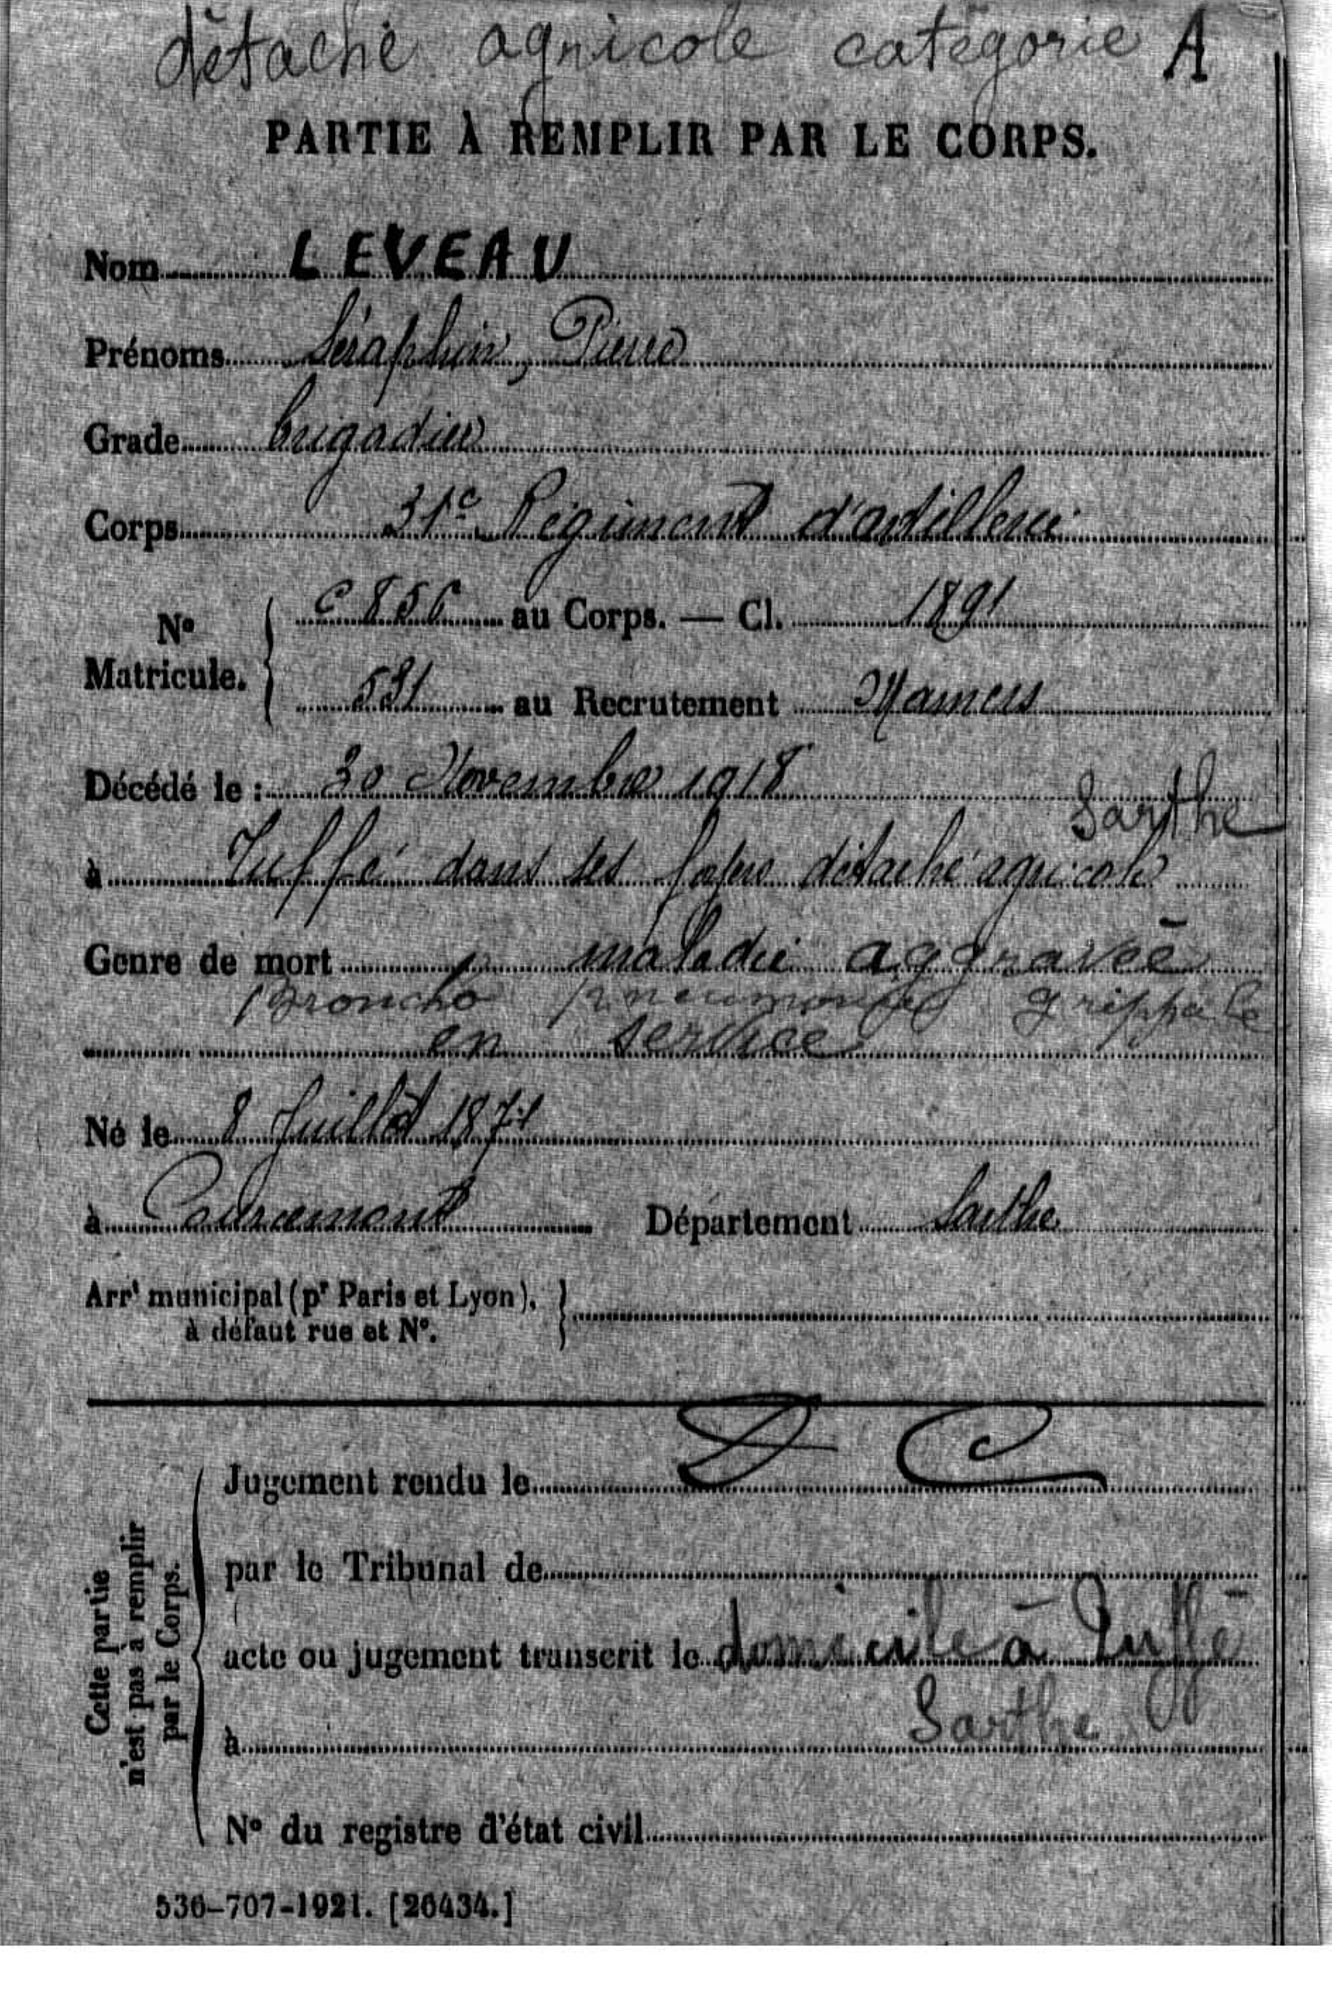 détaché agricole catégorie A
PARTIE À REMPLIR PAR LE CORPS.
Nom LEVEAU
Prénoms Séraphin, Pierre
Grade brigadier
Corps 31e Régiment d'artillerie
No Matricule. { C 856 au Corps. — Cl. 1891
531 au Recrutement Mamers
Décédé le : 30 Novembre 1918
Sarthe
à Tuffé dans ses foyers détaché agricole
Genre de mort maladie aggravée
Broncho pneumonie grippale
en service
Né le 8 Juillet 1871
à Courcemont Département Sarthe
Arrt municipal (pr Paris et Lyon), }
à défaut rue et No.
Jugement rendu le D C
par le Tribunal de
acte ou jugement transcrit le domicilié à Tuffé
Sarthe
à
No du registre d'état civil
Cette partie
n'est pas à remplir
par le Corps.
536-707-1921. [26434.]